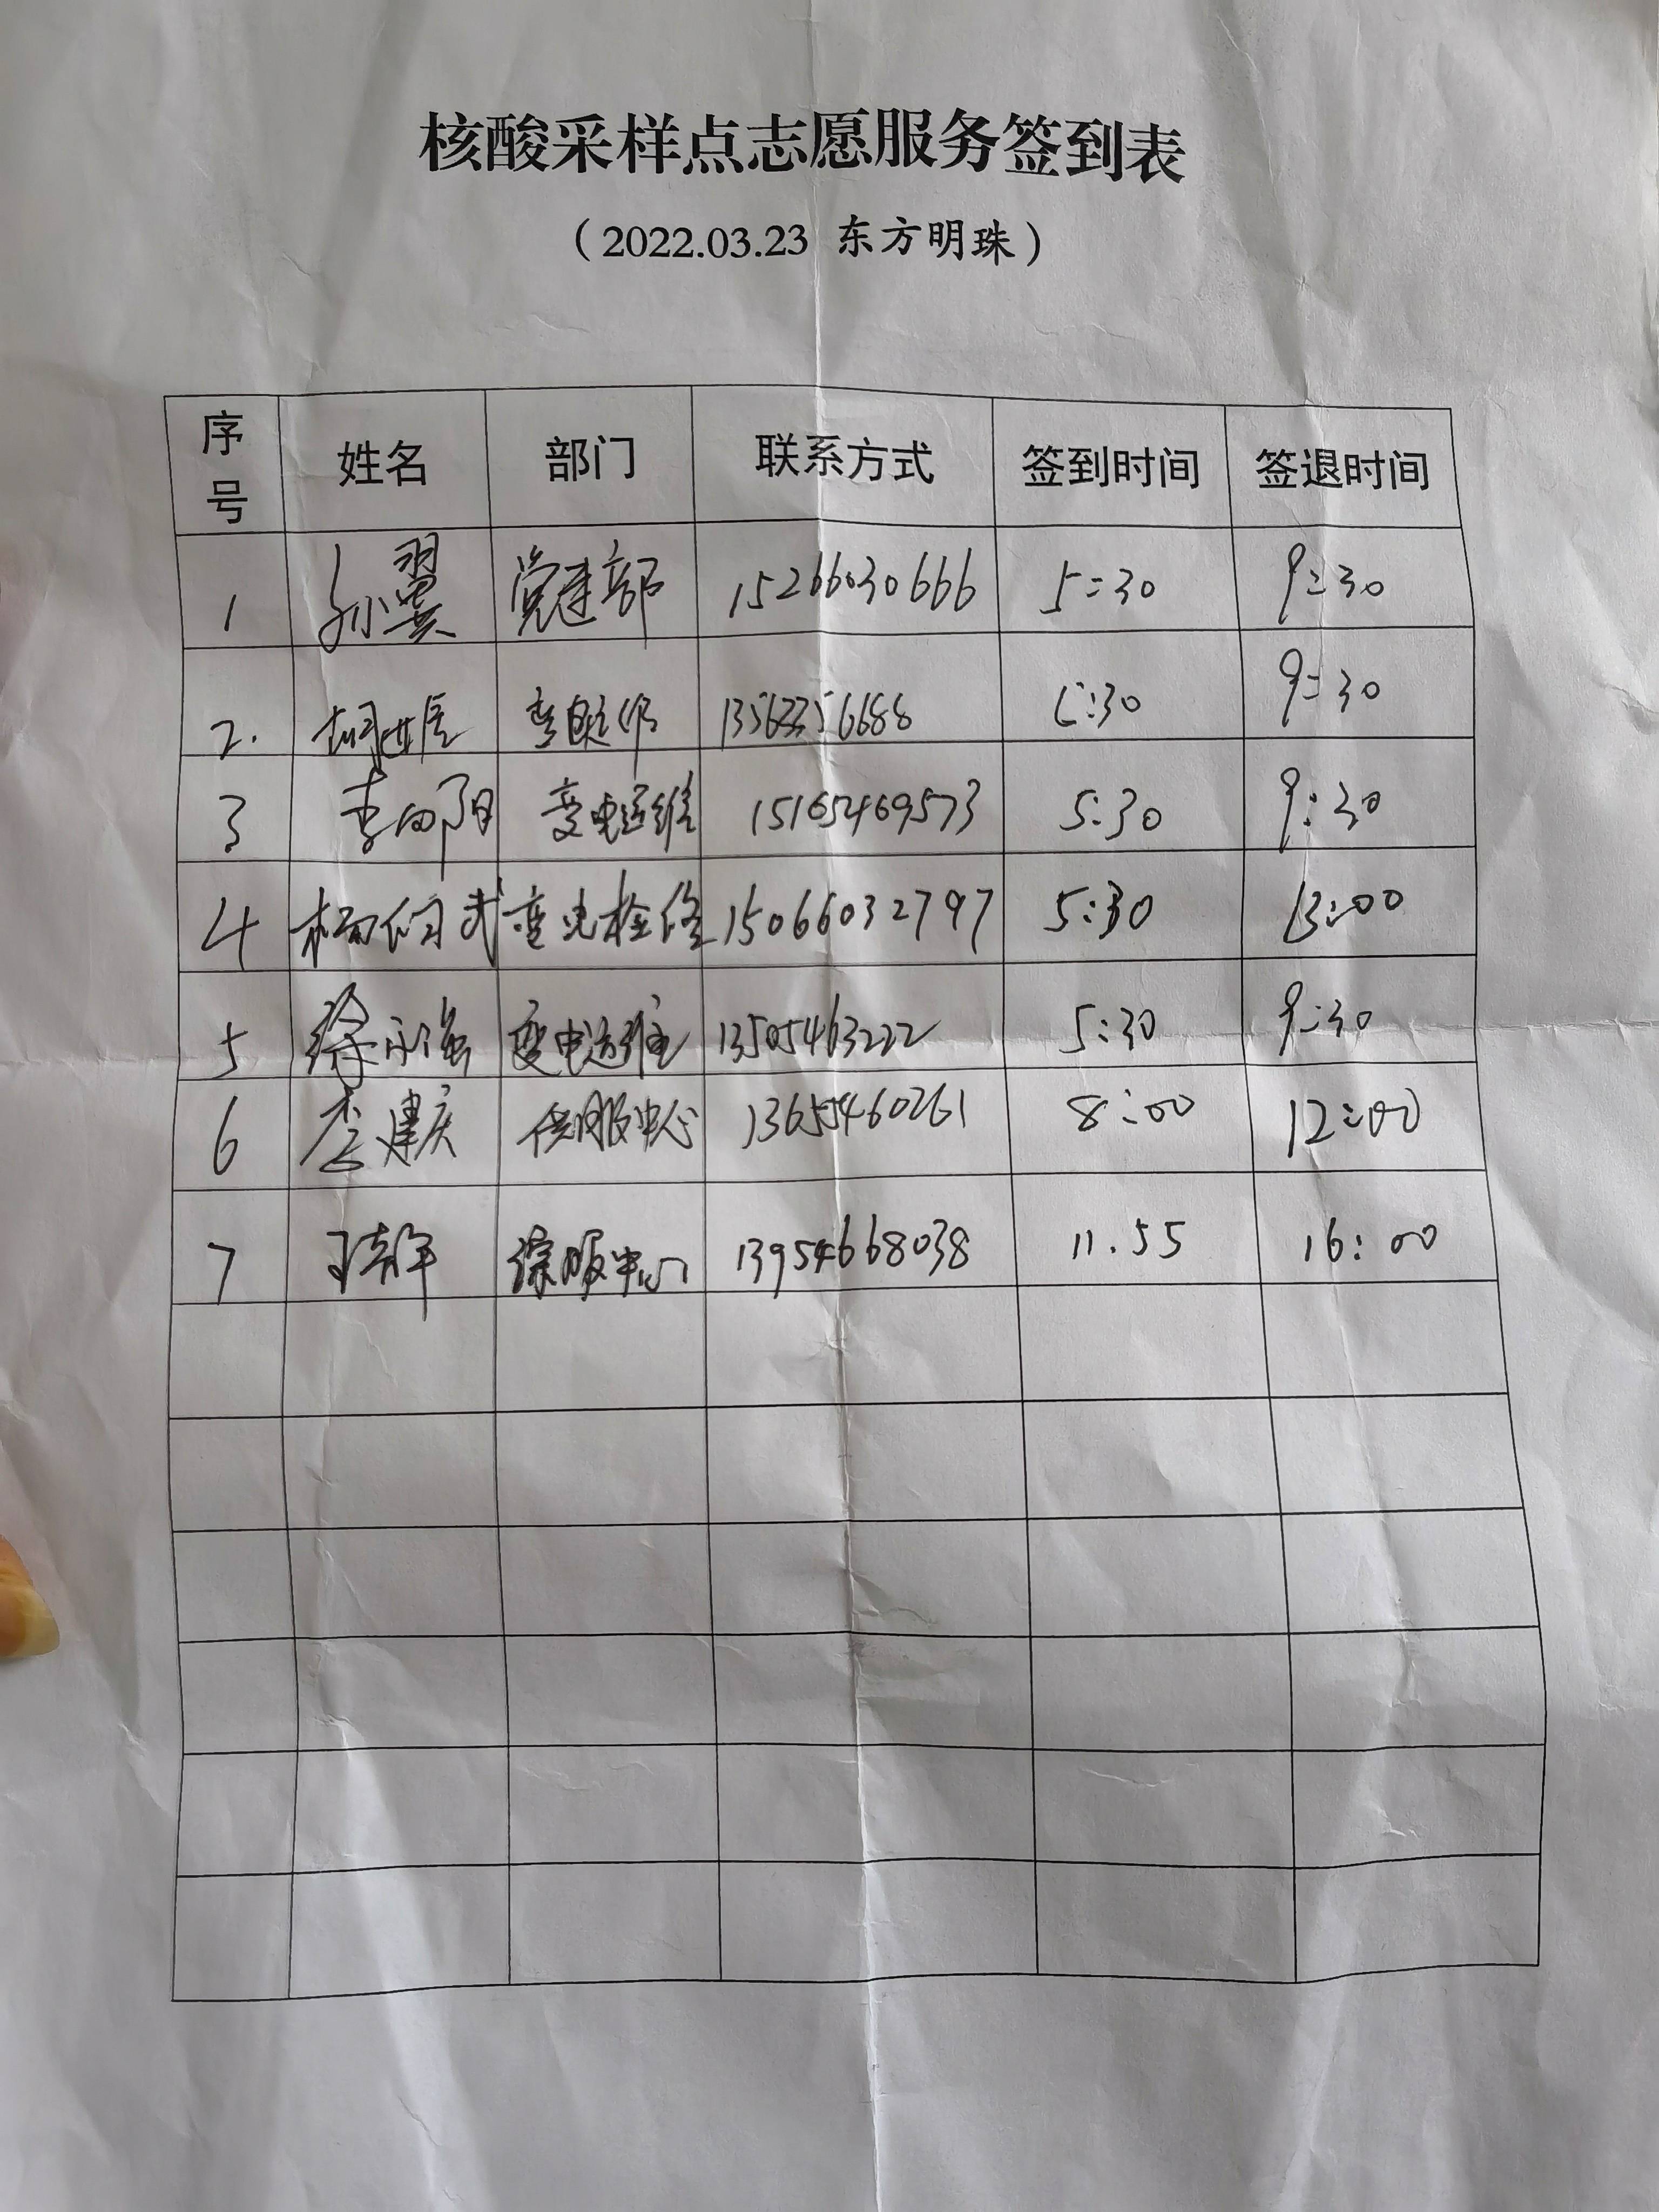 核酸采样点志愿服务签到表
（2022.03.23 东方明珠）
序号 姓名 部门 联系方式 签到时间 签退时间
1 孙翼 党建部 15266030666 5:30 9:30
2. 13562356688 5:30 9:30
3 李向阳 变电运维 15165469573 5:30 9:30
4 变电检修 15066032797 5:30 13:00
5 徐永强 变电运维 13505463222 5:30 9:30
6 李建庆 供服中心 13655460261 8:00 12:00
7 综服中心 13954668038 11.55 16:00